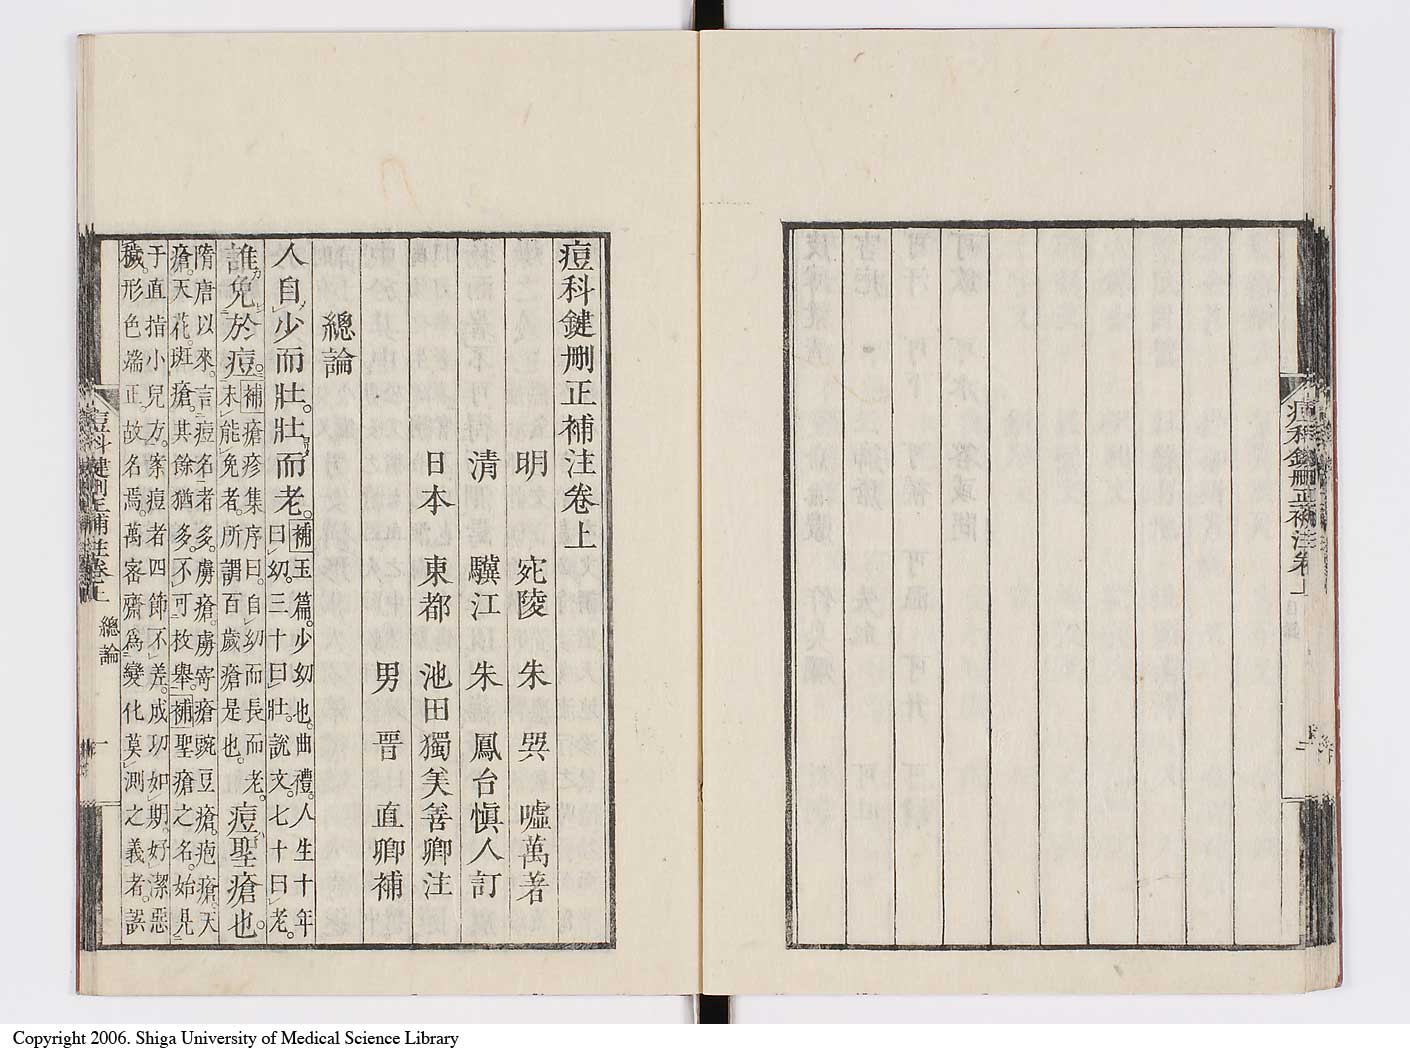 痘科鍵刪正補注卷上
明 宛陵 朱 巽 嘘萬著
清 驥江 朱 鳳台愼人訂
日本 東都 池田獨美善卿注
男 晋 直卿補
總論
人自少而壯。壯而老。補玉篇。少幼也。曲禮。人生十年
曰幼。三十曰壯。說文。七十曰老。
誰免於痘。補瘡疹集序曰。自幼而長而老。
未能免者。所謂百歲瘡是也。痘聖瘡也。
隋唐以來。言痘名者多。虜瘡。虜瘡豌豆瘡。疱瘡。天
瘡。天花。斑瘡。其餘猶多。不可枚舉。補聖瘡之名。始見
于直指小兒方。案痘者四節不差。成功如期。好潔惡
穢。形色端正。故名焉。萬密齋爲變化莫測之義者。誤
痘科鍵刪正補注卷上 總論 一
痘科鍵刪正補注卷上 目録
Copyright 2006. Shiga University of Medical Science Library